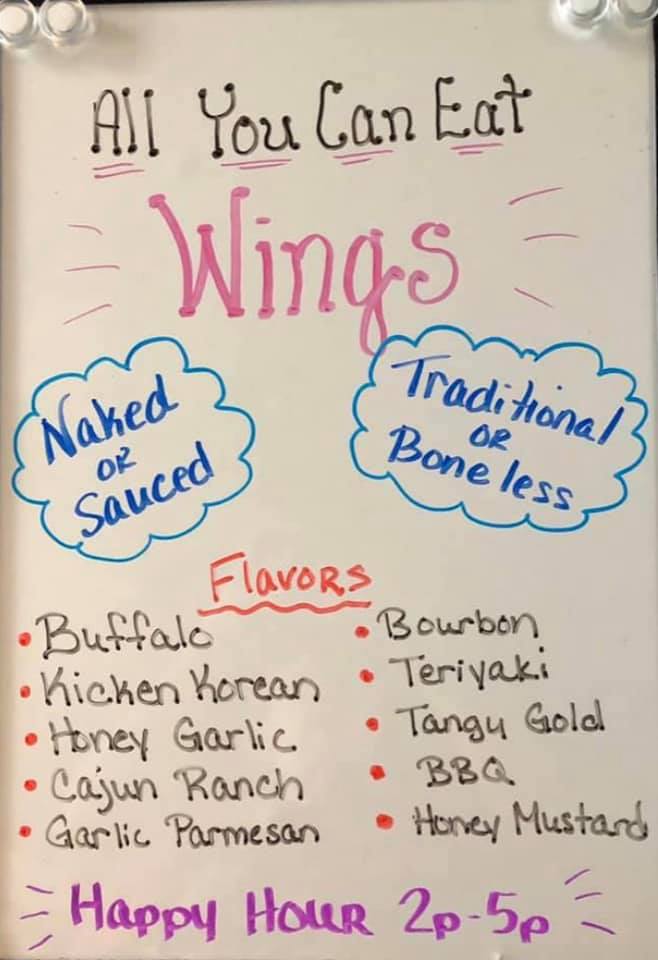 All You Can Eat
Wings
Naked
OR
Sauced
Traditional
OR
Boneless
Flavors
• Buffalo
• Kicken Korean
• Honey Garlic
• Cajun Ranch
• Garlic Parmesan
• Bourbon
• Teriyaki
• Tangy Gold
• BBQ
• Honey Mustard
Happy Hour 2p-5p